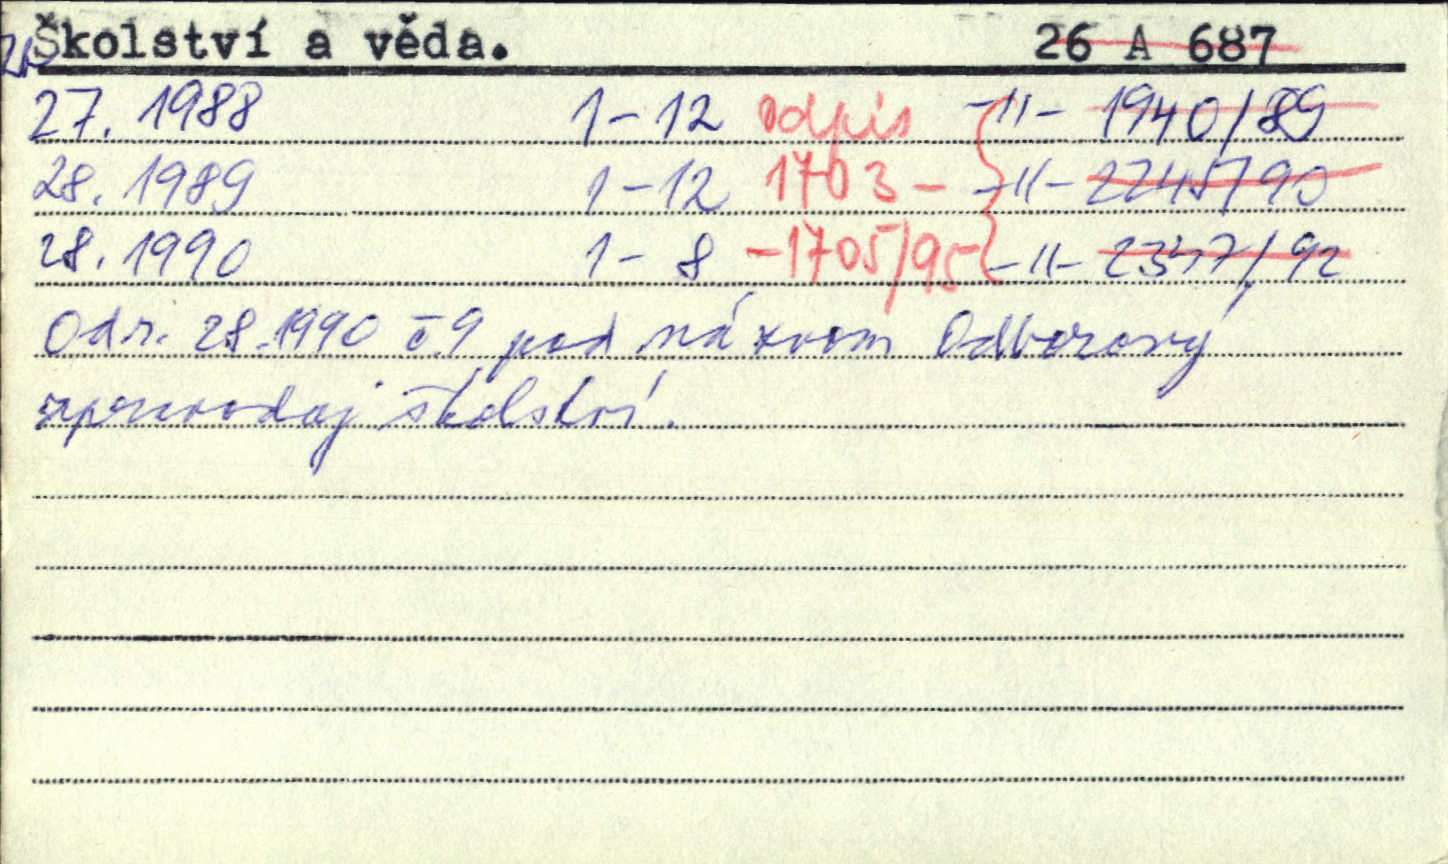 Školství a věda. 26 A 687
27. 1988 1-12 odpis -11- 1940/89
28. 1989 1-12 1703- -11- 2245/90
28. 1990 1-8 -1705/95 -11- 2347/92
Od r. 28.1990 č.9 pod názvom Odborový
zpravodaj školství.